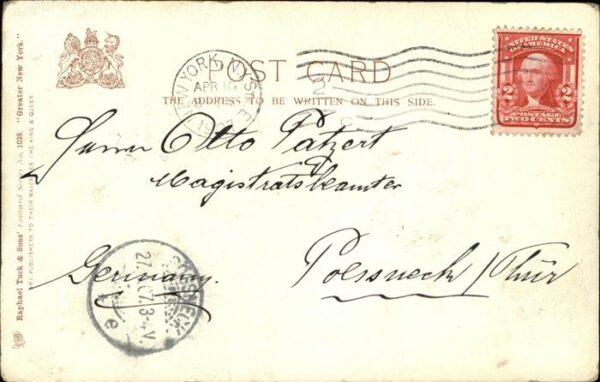 POST CARD
THE ADDRESS TO BE WRITTEN ON THIS SIDE.
NEW YORK, N.Y. STA. E
APR 16
1907
2
UNITED STATES
OF AMERICA
2 2
POSTAGE
TWO CENTS
Herrn Otto Patzert
Magistratsbeamter
Germany.
Poessneck/Thür
27. 07. 3-4 V.
e
Raphael Tuck & Sons' Postcard Series No. 1038. "Greater New York."
ART PUBLISHERS TO THEIR MAJESTIES THE KING & QUEEN